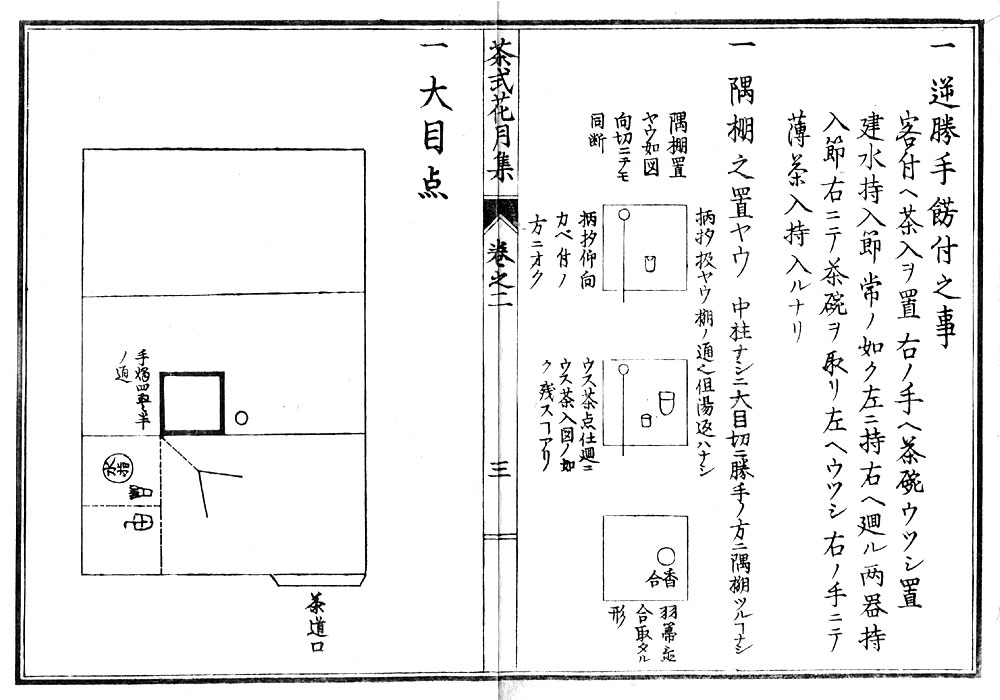 一 逆勝手餝付之事
客付ヘ茶入ヲ置右ノ手ヘ茶碗ウツシ置
建水持入節常ノ如ク左ニ持右ヘ廻ル両器持
入節右ニテ茶碗ヲ取リ左ヘウツシ右ノ手ニテ
薄茶入持入ルナリ
一 隅棚之置ヤウ 中柱ナシニ大目切ニ勝手ノ方ニ隅棚ツルヿナシ
柄杓扱ヤウ棚ノ通之但湯返ハナシ
隅棚置
ヤウ如図
向切ニテモ
同断
柄杓仰向
カベ付ノ
方ニオク
ウス茶点仕廻ニ
ウス茶入図ノ如
ク残スヿアリ
香合
羽箒
合取タル
形
茶式花月集
巻之二
三
一 大目点
ノ通
水指
茶道口